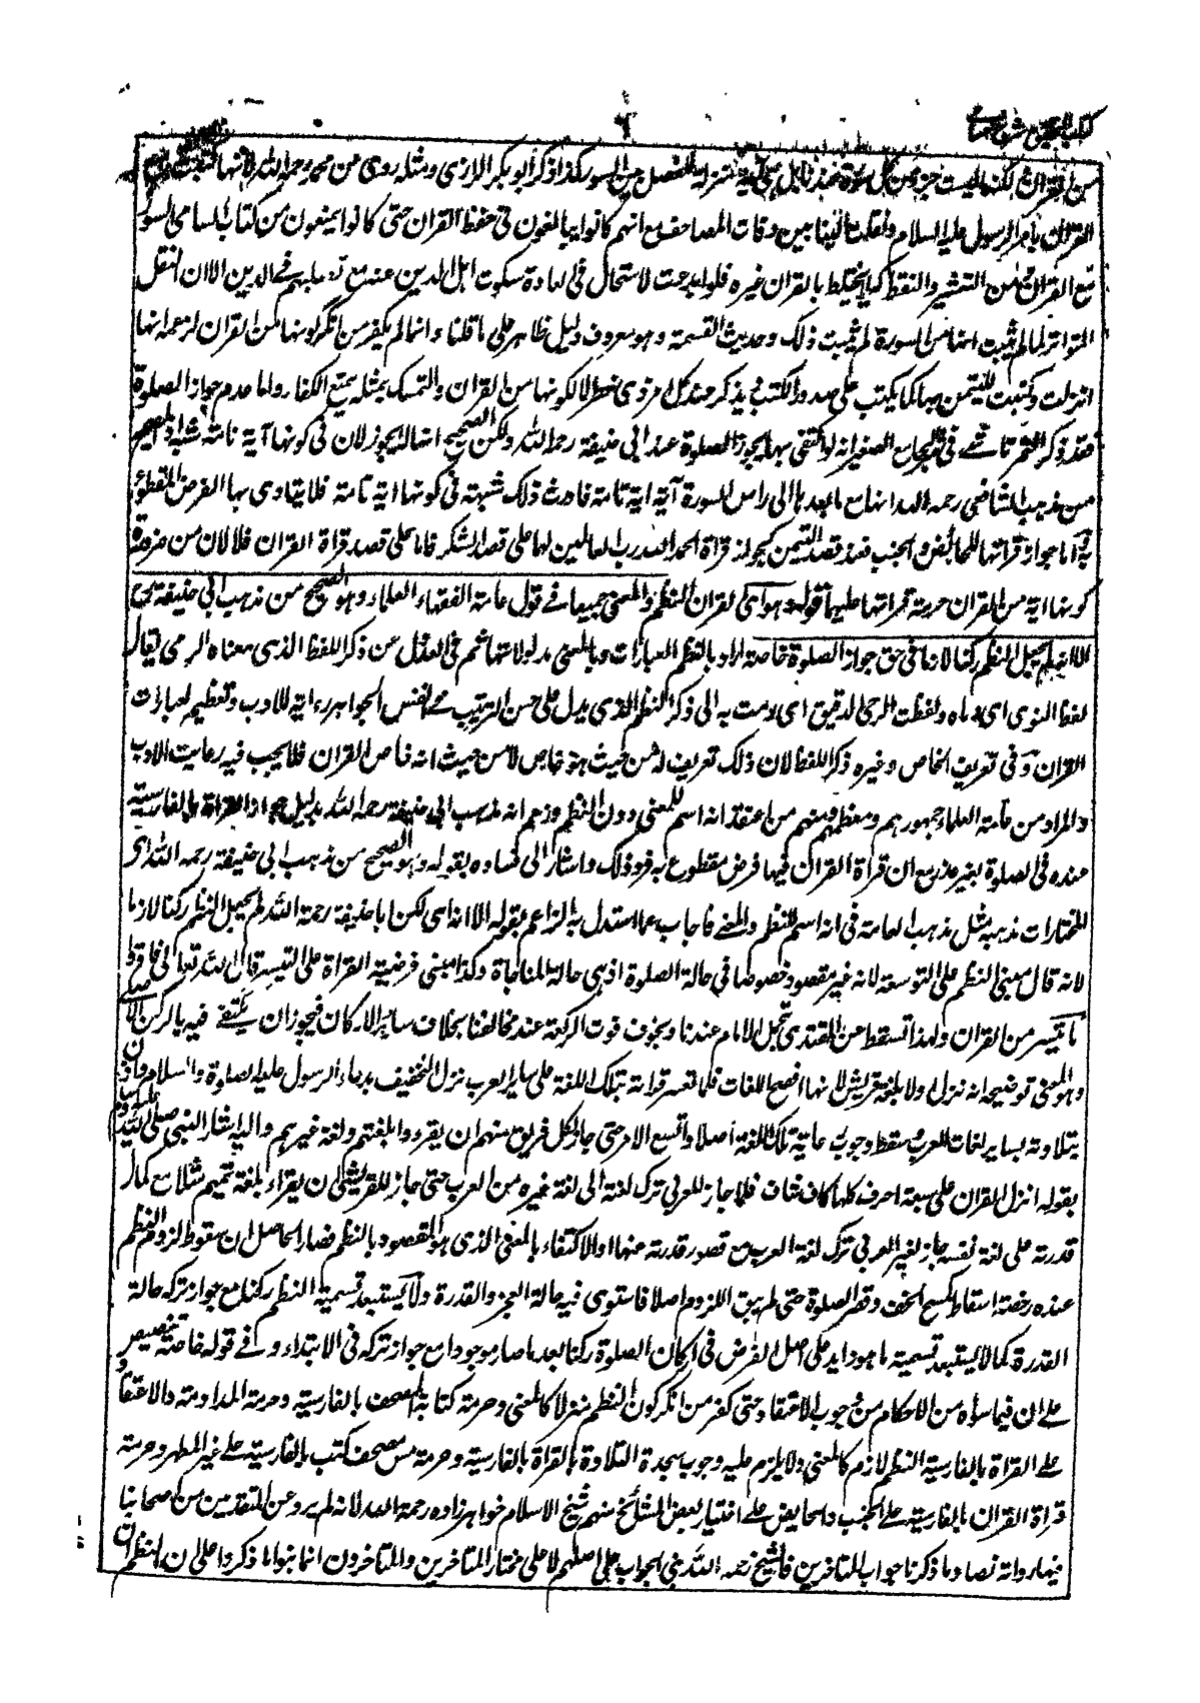 كتاب التحقيق شرح حسامى
من القران لكنها ليست جزء من كل سورة عندنا بل هى آية منزلة للفصل بين السور كذا ذكر ابو بكر الرازى ومثله روى من محمد رحمه الله لانها كتبت
القران بامر الرسول عليه السلام ونقلت الينا بين دفات المصاحف مع انهم كانوا يبالغون فى حفظ القران حتى كانوا يمنعون من كتاب اسامى السور
مع القران ومن التعشير والنقط كيلا يختلط بالقران غيره فلو ابدعت لاستحال فى العادة سكوت اهل الدين عنه مع تصلبهم فى الدين الا ان النقل
المتواتر لما لم يثبت انها من السورة لم يثبت ذلك وحديث القسمة وهو معروف دليل ظاهر على ما قلناه وانما لم يكفر من انكر كونها من القران لزعمه انها
انزلت وكتبت للتيمن بها كما يكتب على صدور الكتب ويذكر عند كل امر ذى خطر لا لكونها من القران والتمسك بمثله يمنع الكفار واما عدم جواز الصلوة
فقد ذكر التمرتاشى فى شرح الجامع الصغير انه لو اكتفى بها يجوز الصلوة عند ابى حنيفة رحمه الله ولكن الصحيح انها لا يجوز لان فى كونها آية تامة شبهة
من مذهب الشافعى رحمه الله انها مع ما بعدها الى راس السورة آية تامة فاورث ذلك شبهة فى كونها اية تامة فلا يتادى بها الفرض المقطوع
به واما جواز قرائتها للحائض والجنب فعند قصد التيمن كجواز قراة الحمد لله رب العالمين لهما على قصد الشكر فاما على قصد قراة القران فلا لان من ضرورة
كونها اية من القران حرمة قرائتها عليهما قوله وهو اى القران النظم والمعنى جميعا فى قول عامة الفقهاء العلماء وهو الصحيح من مذهب ابى حنيفة رح
الا انه لم يجعل النظم ركنا لازما فى حق جواز الصلوة خاصة اراد بالنظم العبارات وبالمعنى مدلولاتها ثم فى العدل من ذكر اللفظ الذى معناه الرمى يقال
لفظ النوى اى رماه ولفظت الرحى الدقيق اى رمت به الى ذكر النظم الذى يدل على حسن الترتيب فى نفس الجواهر رعاية للادب وتعظيم لعبارات
القران وفى تعريف الخاص وغيره ذكر اللفظ لان ذلك تعريف له من حيث هو خاص لا من حيث انه خاص القران فلا يجب فيه رعايت الادب
والمراد من عامة العلماء جمهورهم ومعظمهم ومنهم من اعتقد انه اسم للمعنى دون النظم وزعم انه مذهب ابى حنيفة رحمه الله بدليل جواز القراة بالفارسية
عنده فى الصلوة بغير عذر مع ان قراة القران فيها فرض مقطوع به فرد ذلك واشار الى فساده بقوله وهو الصحيح من مذهب ابى حنيفة رحمه الله اى
المختار ان مذهبه مثل مذهب العامة فى انه اسم للنظم والمعنى فاجاب عما استدل به الزاعم بقوله الا انه اى لكن ابا حنيفة رحمة الله لم يجعل النظم ركنا لازما
لانه قال مبنى النظم على التوسعة لانه غير مقصود خصوصا فى حالة الصلوة اذ هى حالة المناجاة وكذا مبنى فرضية القراة على التيسير قال الله تعالى فاقرؤا
ما تيسر من القران ولهذا تسقط عن المقتدى بتحمل الامام عندنا وبخوف فوت الركعة عند مخالفنا بخلاف ساير الاركان فيجوز ان يكتفى فيه بالركن الاصلى
وهو المعنى توضيحه انه نزل اولا بلغة قريش لانها افصح اللغات فلما تعسر قرائة بتلك اللغة على ساير العرب نزل التخفيف بدعاء الرسول عليه الصلوة والسلام واذن
بتلاوته بساير لغات العرب وسقط وجوب رعاية تلك اللغة اصلا واتسع الامر حتى جاز لكل فريق منهم ان يقرؤوا بلغتهم ولغة غيرهم واليه اشار النبى صلى الله عليه وسلم
بقوله انزل القران على سبعة احرف كلها كاف شاف فلما جاز للعربى ترك لغته الى لغة غيره من العرب حتى جاز للقريشى ان يقراء بلغة تميم مثلا مع كمال
قدرته على لغة نفسه جاز لغير العربى ترك لغة العرب مع قصور قدرته عنها والاكتفاء بالمعنى الذى هو المقصود بالنظم فصار الحاصل ان سقوط لزوم النظم
عنده رخصة اسقاط كمسح الخف وقصر الصلوة حتى لم يبق اللزوم اصلا فاستوى فيه حالة العجز والقدرة ولا يستبعد تسمية النظم ركنا مع جواز تركه حالة
القدرة كما لا يستبعد تسمية ما هو زايد على اصل الفرض فى اركان الصلوة ركنا بعد ما صار موجودا مع جواز تركه فى الابتداء وفى قوله خاصة تنصيص
على ان فيما سواه من الاحكام من وجوب الاعتقاد حتى كفر من انكر كون النظم منزلا كالمعنى وحرمة كتابة المصحف بالفارسية وحرمة المداومة والاعتقاد
على القراة بالفارسية النظم لازم كالمعنى ولا يلزم عليه وجوب سجدة التلاوة بالقراة بالفارسية وحرمة مس مصحف كتب بالفارسية على غير المطهر وحرمة
قراة القران بالفارسية على الجنب والحايض على اختيار بعض المشائخ منهم شيخ الاسلام خواهر زاده رحمة الله لانه لم يرو عن المتقدمين من صحابنا
فيها رواية نصا وما ذكرنا جواب المتاخرين فالشيخ رحمه الله بنى الجواب على اصلهم لا على مختار المتاخرين والمتاخرون انما بنوا ما ذكروا على ان النظم